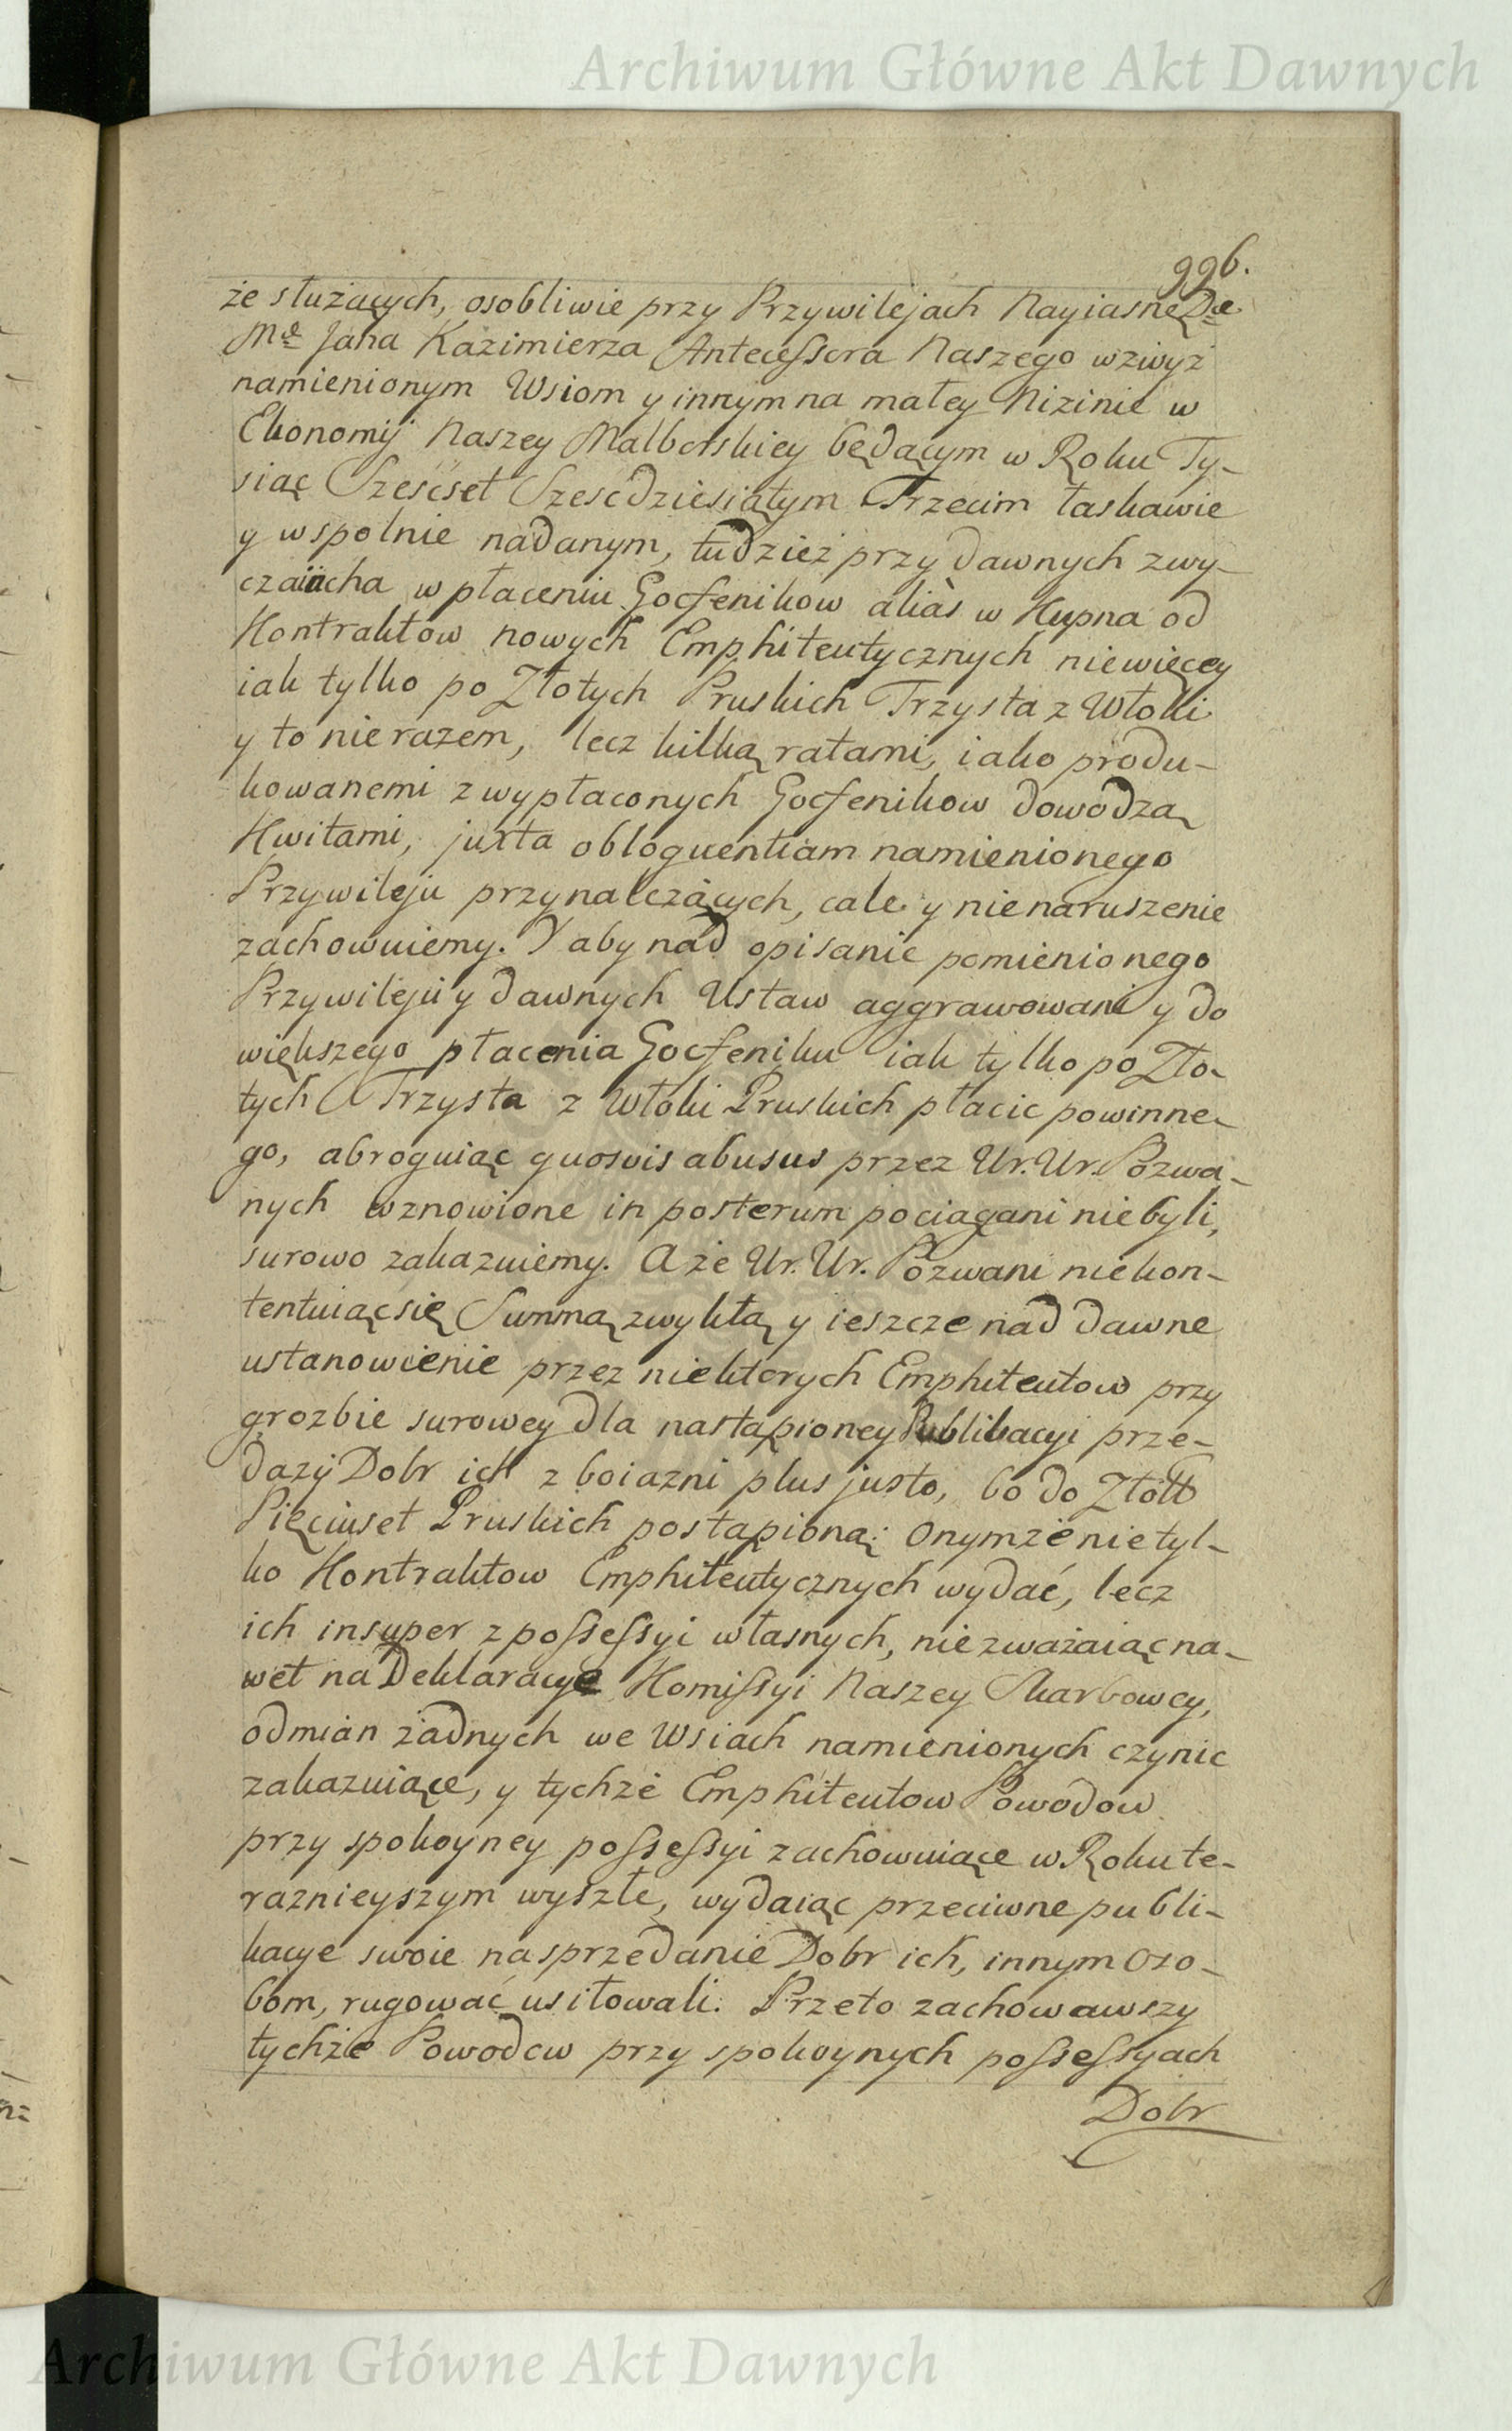 Archiwum Główne Akt Dawnych
996.
że służących, osobliwie przy Przywilejach Nayiasne
Jana Kazimierza Antecessora Naszego wzwyż
namienionym Wsiom y innym na małey Nizinie w
Ekonomij Naszey Malborskiey będącym w Roku Ty-
siąc Szesćset Szescdziesiątym Trzecim łaskawie
y wspolnie nadanym, tudzież przy dawnych zwy-
w płaceniu Gocfenikow alias w Kupna od
Kontraktow nowych Emphiteutycznych niewięcey
iak tylko po Złotych Pruskich Trzysta z Włoki
y to nie razem, lecz kilką ratami, iako produ-
kowanemi z wypłaconych Gocfenikow dowodzą
Kwitami, juxta obloquentiam namienionego
Przywileju przynależących, cale y nienaruszenie
zachowuiemy. Y aby nad opisanie pomienionego
Przywileju y dawnych Ustaw aggrawowani y do
większego płacenia Gocfeniku iak tylko po Zło-
tych Trzysta z Włoki Pruskich płacic powinne-
go, abroguiąc quosvis abusus przez Ur. Ur. Pozwa-
nych wznowione in posterum pociągani niebyli,
surowo zakazuiemy. A że Ur. Ur. Pozwani niekon-
tentuiąc się Summą zwykłą y ieszcze nad dawne
ustanowienie przez niektorych Emphiteutow przy
grozbie surowey dla nastąpioney Publikacyi prze-
dazy Dobr ich z boiazni plus justo, bo do Złott
Pięciuset Pruskich postąpioną; onymże nietyl-
ko Kontraktow Emphiteutycznych wydać, lecz
ich insuper z possessyi własnych, niezważaiąc na-
wet na Deklaracye Komissyi Naszey Skarbowey,
odmian żadnych we Wsiach namienionych czynic
zakazuiące, y tychże Emphiteutow Powodow
przy spokoyney possessyi zachowuiące w Roku te-
raznieyszym wyszłe, wydaiąc przeciwne publi-
kacye swoie na sprzedanie Dobr ich, innym Oso-
bom, rugować usiłowali. Przeto zachowawszy
tychże Powodow przy spokoynych possessyach
Dobr
Archiwum Główne Akt Dawnych